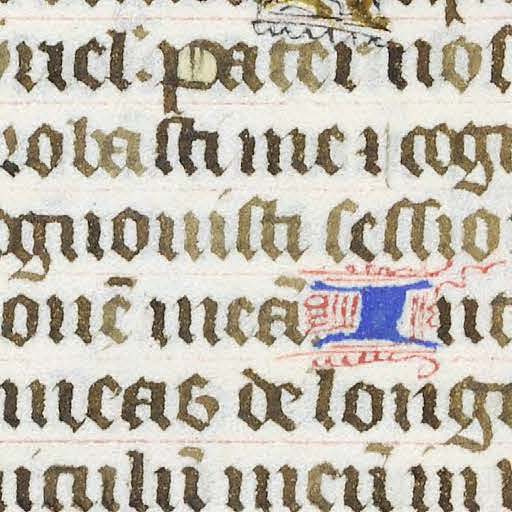 ricl: pater nos
robasti me ⁊ cogn
ognouisti sessio
onē meā Int
meas de longe
niculū meū in